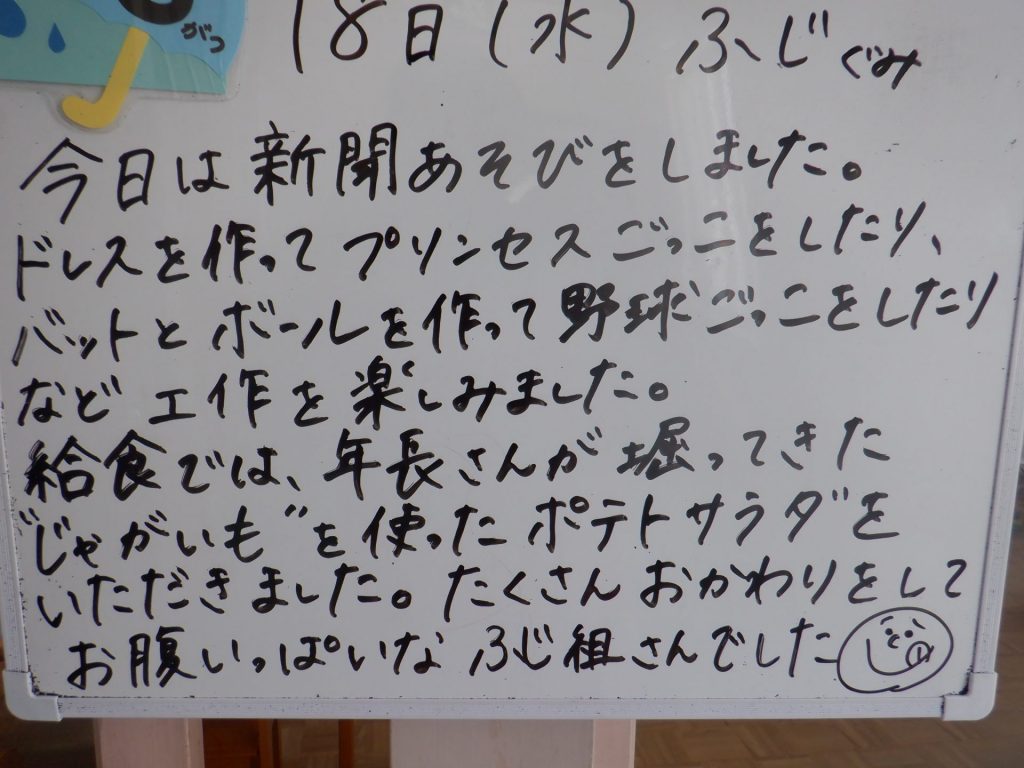 がつ
18日(水) ふじぐみ
今日は新聞あそびをしました。
ドレスを作ってプリンセスごっこをしたり、
バットとボールを作って野球ごっこをしたり
など工作を楽しみました。
給食では、年長さんが堀ってきた
"じゃがいも"を使ったポテトサラダを
いただきました。たくさんおかわりをして
お腹いっぱいなふじ組さんでした